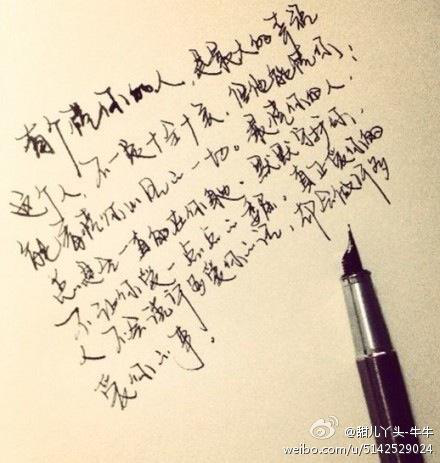 有个懂你的人，是最大的幸福
这个人，不一定十全十美，但他能懂你；
能看懂你心里的一切。最懂你的人，
总是会一直的在你身边，默默守护你，
不让你受一点点的委屈。真正爱你的
人不会说许多爱你的话，却会做许多
爱你的事。
@甜儿丫头-牛牛
weibo.com/u/5142529024